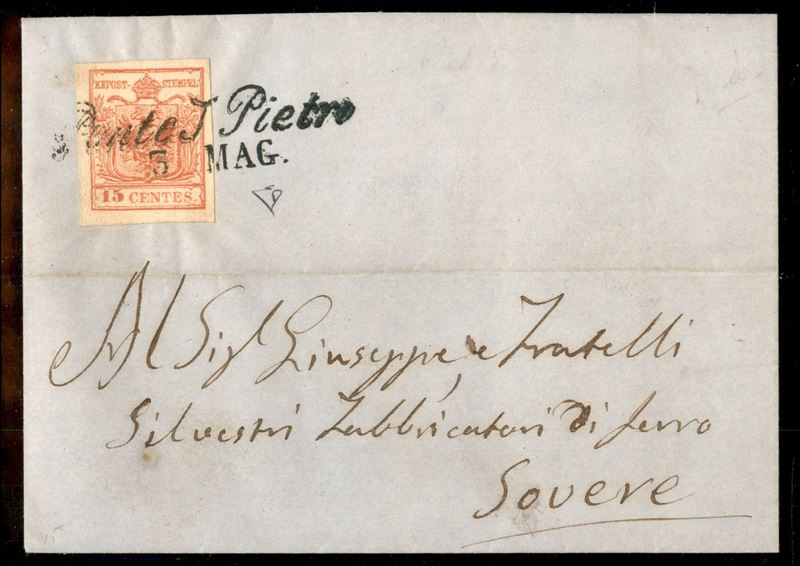 KEPOST-STEMPEL
Ponte S Pietro
3 MAG.
15 CENTES.
Al Sigl. Giuseppe, e Fratelli
Silvestri Fabbricatori di ferro
Sovere